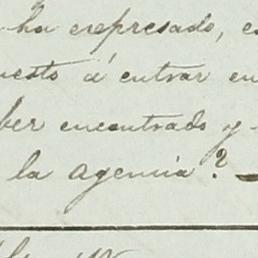 ha expresado, e
uesto á entrar en
ber encontrado y
la agencia?